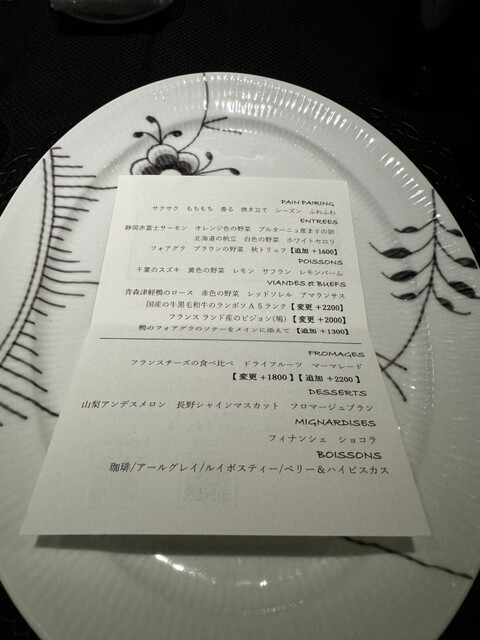 PAIN PAIRING
サクサク もちもち 香る 焼き立て シーズン ふわふわ
ENTREES
静岡赤富士サーモン オレンジ色の野菜 ブルターニュ産ますの卵
北海道の帆立 白色の野菜 ホワイトセロリ
フォアグラ ブラウンの野菜 秋トリュフ【追加 +1600】
POISSONS
千葉のスズキ 黄色の野菜 レモン サフラン レモンバーム
VIANDES et BUEFS
青森津軽鴨のロース 赤色の野菜 レッドソレル アマランサス
国産の牛黒毛和牛のランボソA5ランク【変更 +2200】
フランス ランド産のピジョン(鳩)【変更 +2000】
鴨のフォアグラのソテーをメインに添えて【追加 +1300】
FROMAGES
フランスチーズの食べ比べ ドライフルーツ マーマレード
【変更 +1800】【追加 +2200】
DESSERTS
山梨アンデスメロン 長野シャインマスカット フロマージュブラン
MIGNARDISES
フィナンシェ ショコラ
BOISSONS
珈琲/アールグレイ/ルイボスティー/ベリー＆ハイビスカス